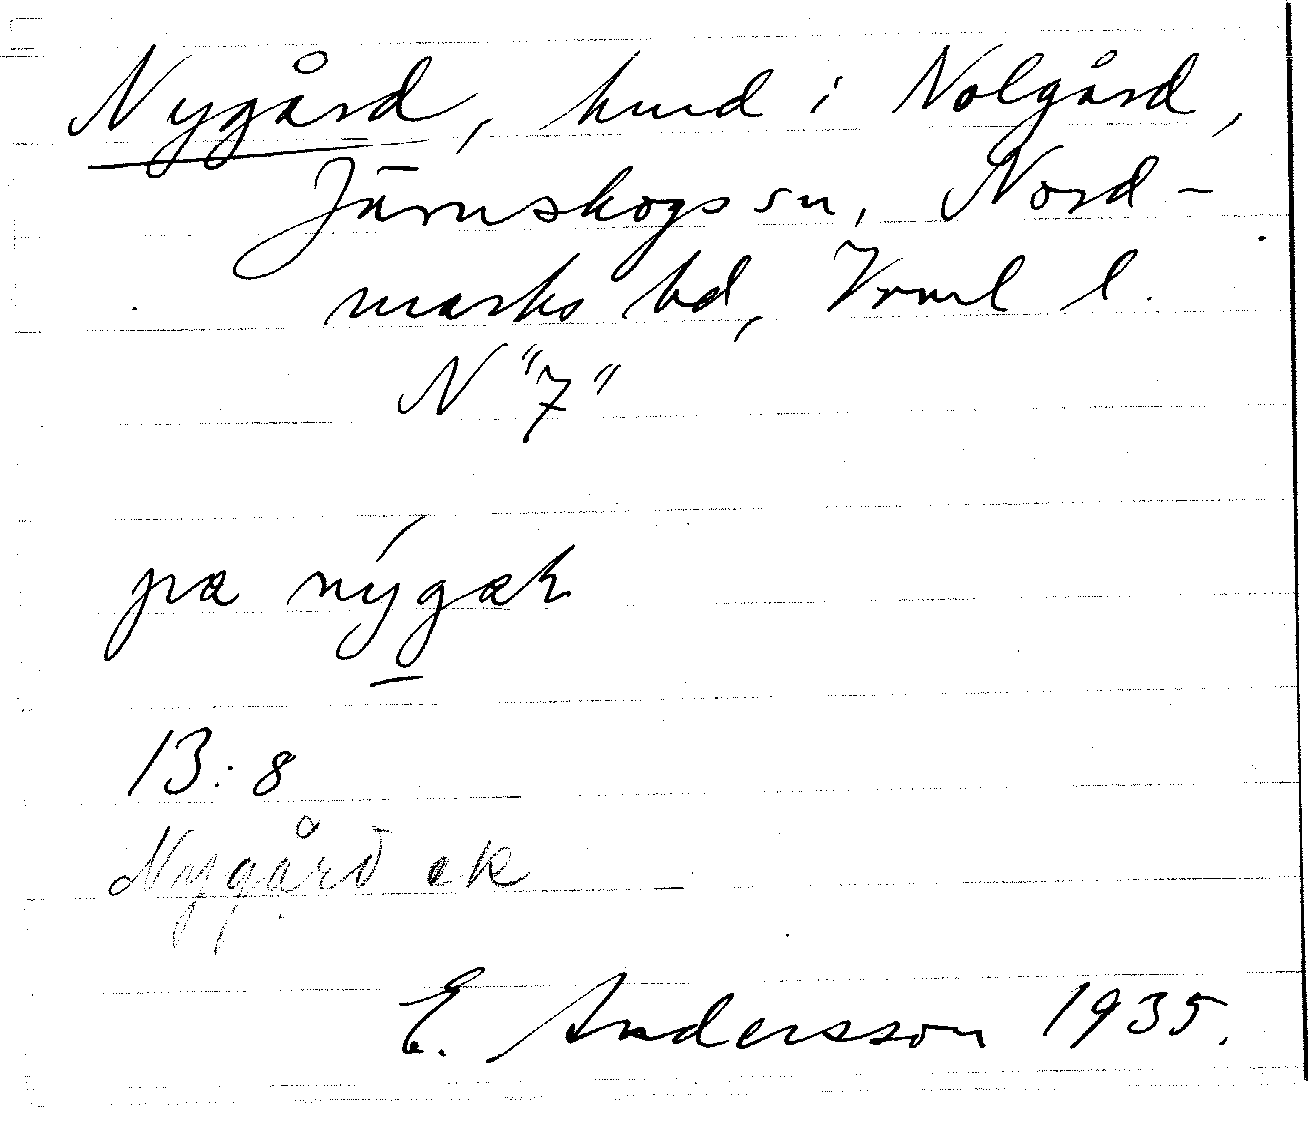 Nygård, hmd i Nolgård,
Järnskogs sn, Nord-
marks hd, Vrml l.
N "7"
pæ nýgæh
13:8
Nygård ek
E. Andersson 1935.